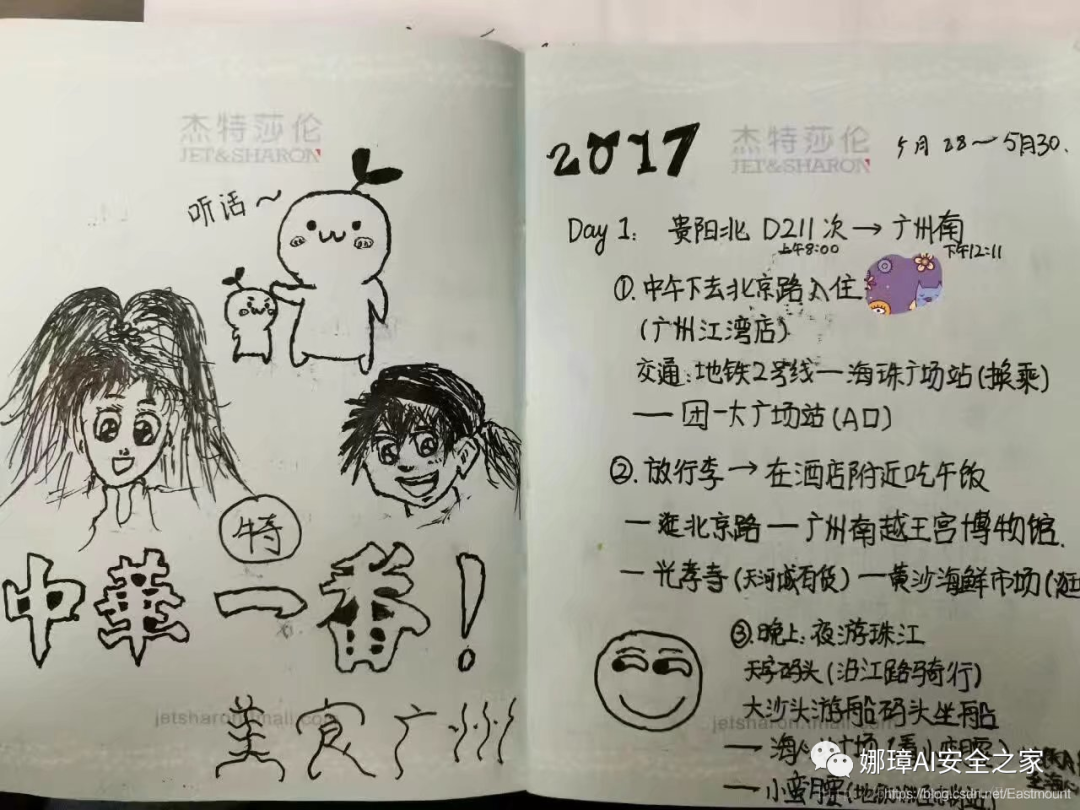 杰特莎伦
JET&SHARON
听话~
特
中華一番!
jetsharon.tmall.com
美食广州
2017
杰特莎伦
JET&SHARON
5月28~5月30.
Day 1: 贵阳北 D211次→广州南
上午8:00 下午12:11
①.中午下去北京路入住
(广州江湾店)
交通:地铁2号线—海珠广场站(换乘)
—团一大广场站(A口)
②.放行李→在酒店附近吃午饭
—逛北京路—广州南越王宫博物馆.
—光孝寺(天河城百货)—黄沙海鲜市场(逛
③.晚上:夜游珠江
天字码头(沿江路骑行)
大沙头游船码头坐船
—小蛮腰(地
娜璋AI安全之家
https://blog.csdn.net/Eastmount